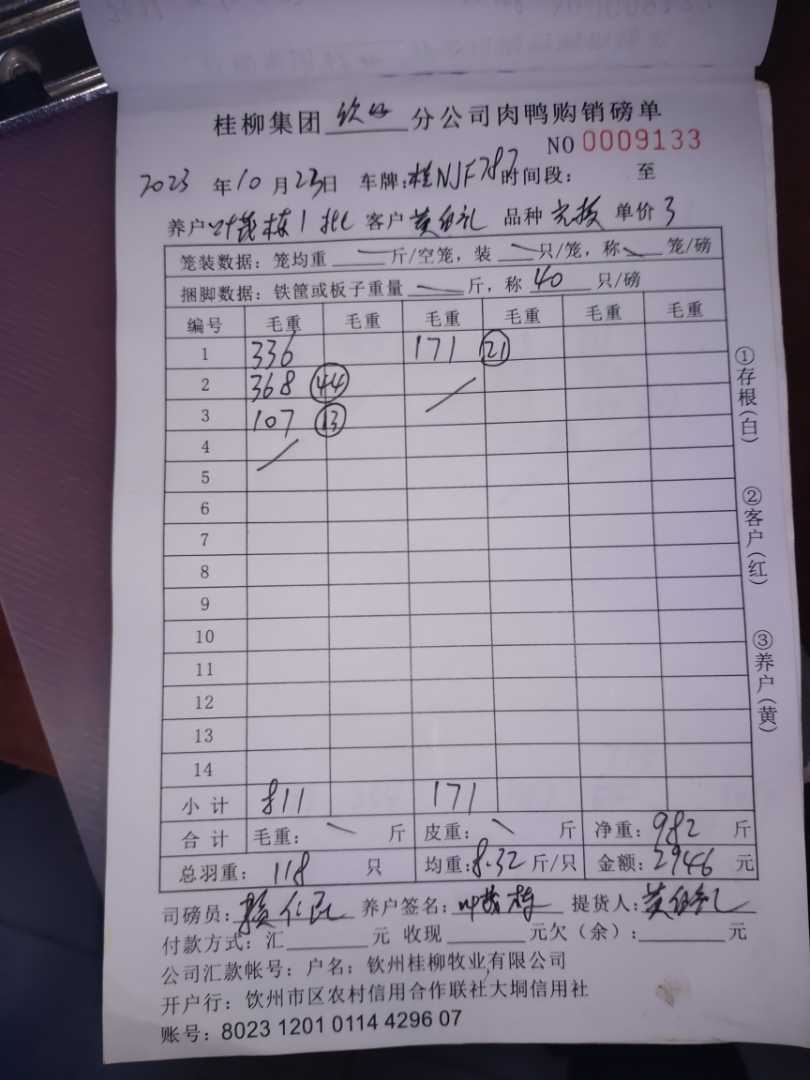 桂柳集团 钦州 分公司肉鸭购销磅单
NO 0009133
2023 年 10 月 23 日 车牌:桂NJF787 时间段: 至
养户 叶茂栋 1批 客户 黄 礼 品种 单价 3
笼装数据: 笼均重 斤/空笼, 装 只/笼, 称 笼/磅
捆脚数据: 铁筐或板子重量 斤, 称 40 只/磅
编号 毛重 毛重 毛重 毛重 毛重 毛重
1 336 171 21
2 368 44
3 107 13
4
5
6
7
8
9
10
11
12
13
14
小计 811 171
合计 毛重: 斤 皮重: 斤 净重: 982 斤
总羽重: 118 只 均重: 8.32 斤/只 金额: 2946 元
司磅员: 仁 养户签名: 叶茂栋 提货人: 黄 礼
付款方式: 汇 元 收现 元欠(余): 元
公司汇款帐号: 户名: 钦州桂柳牧业有限公司
开户行: 钦州市区农村信用合作联社大垌信用社
账号: 8023 1201 0114 4296 07
①存根(白)
②客户(红)
③养户(黄)